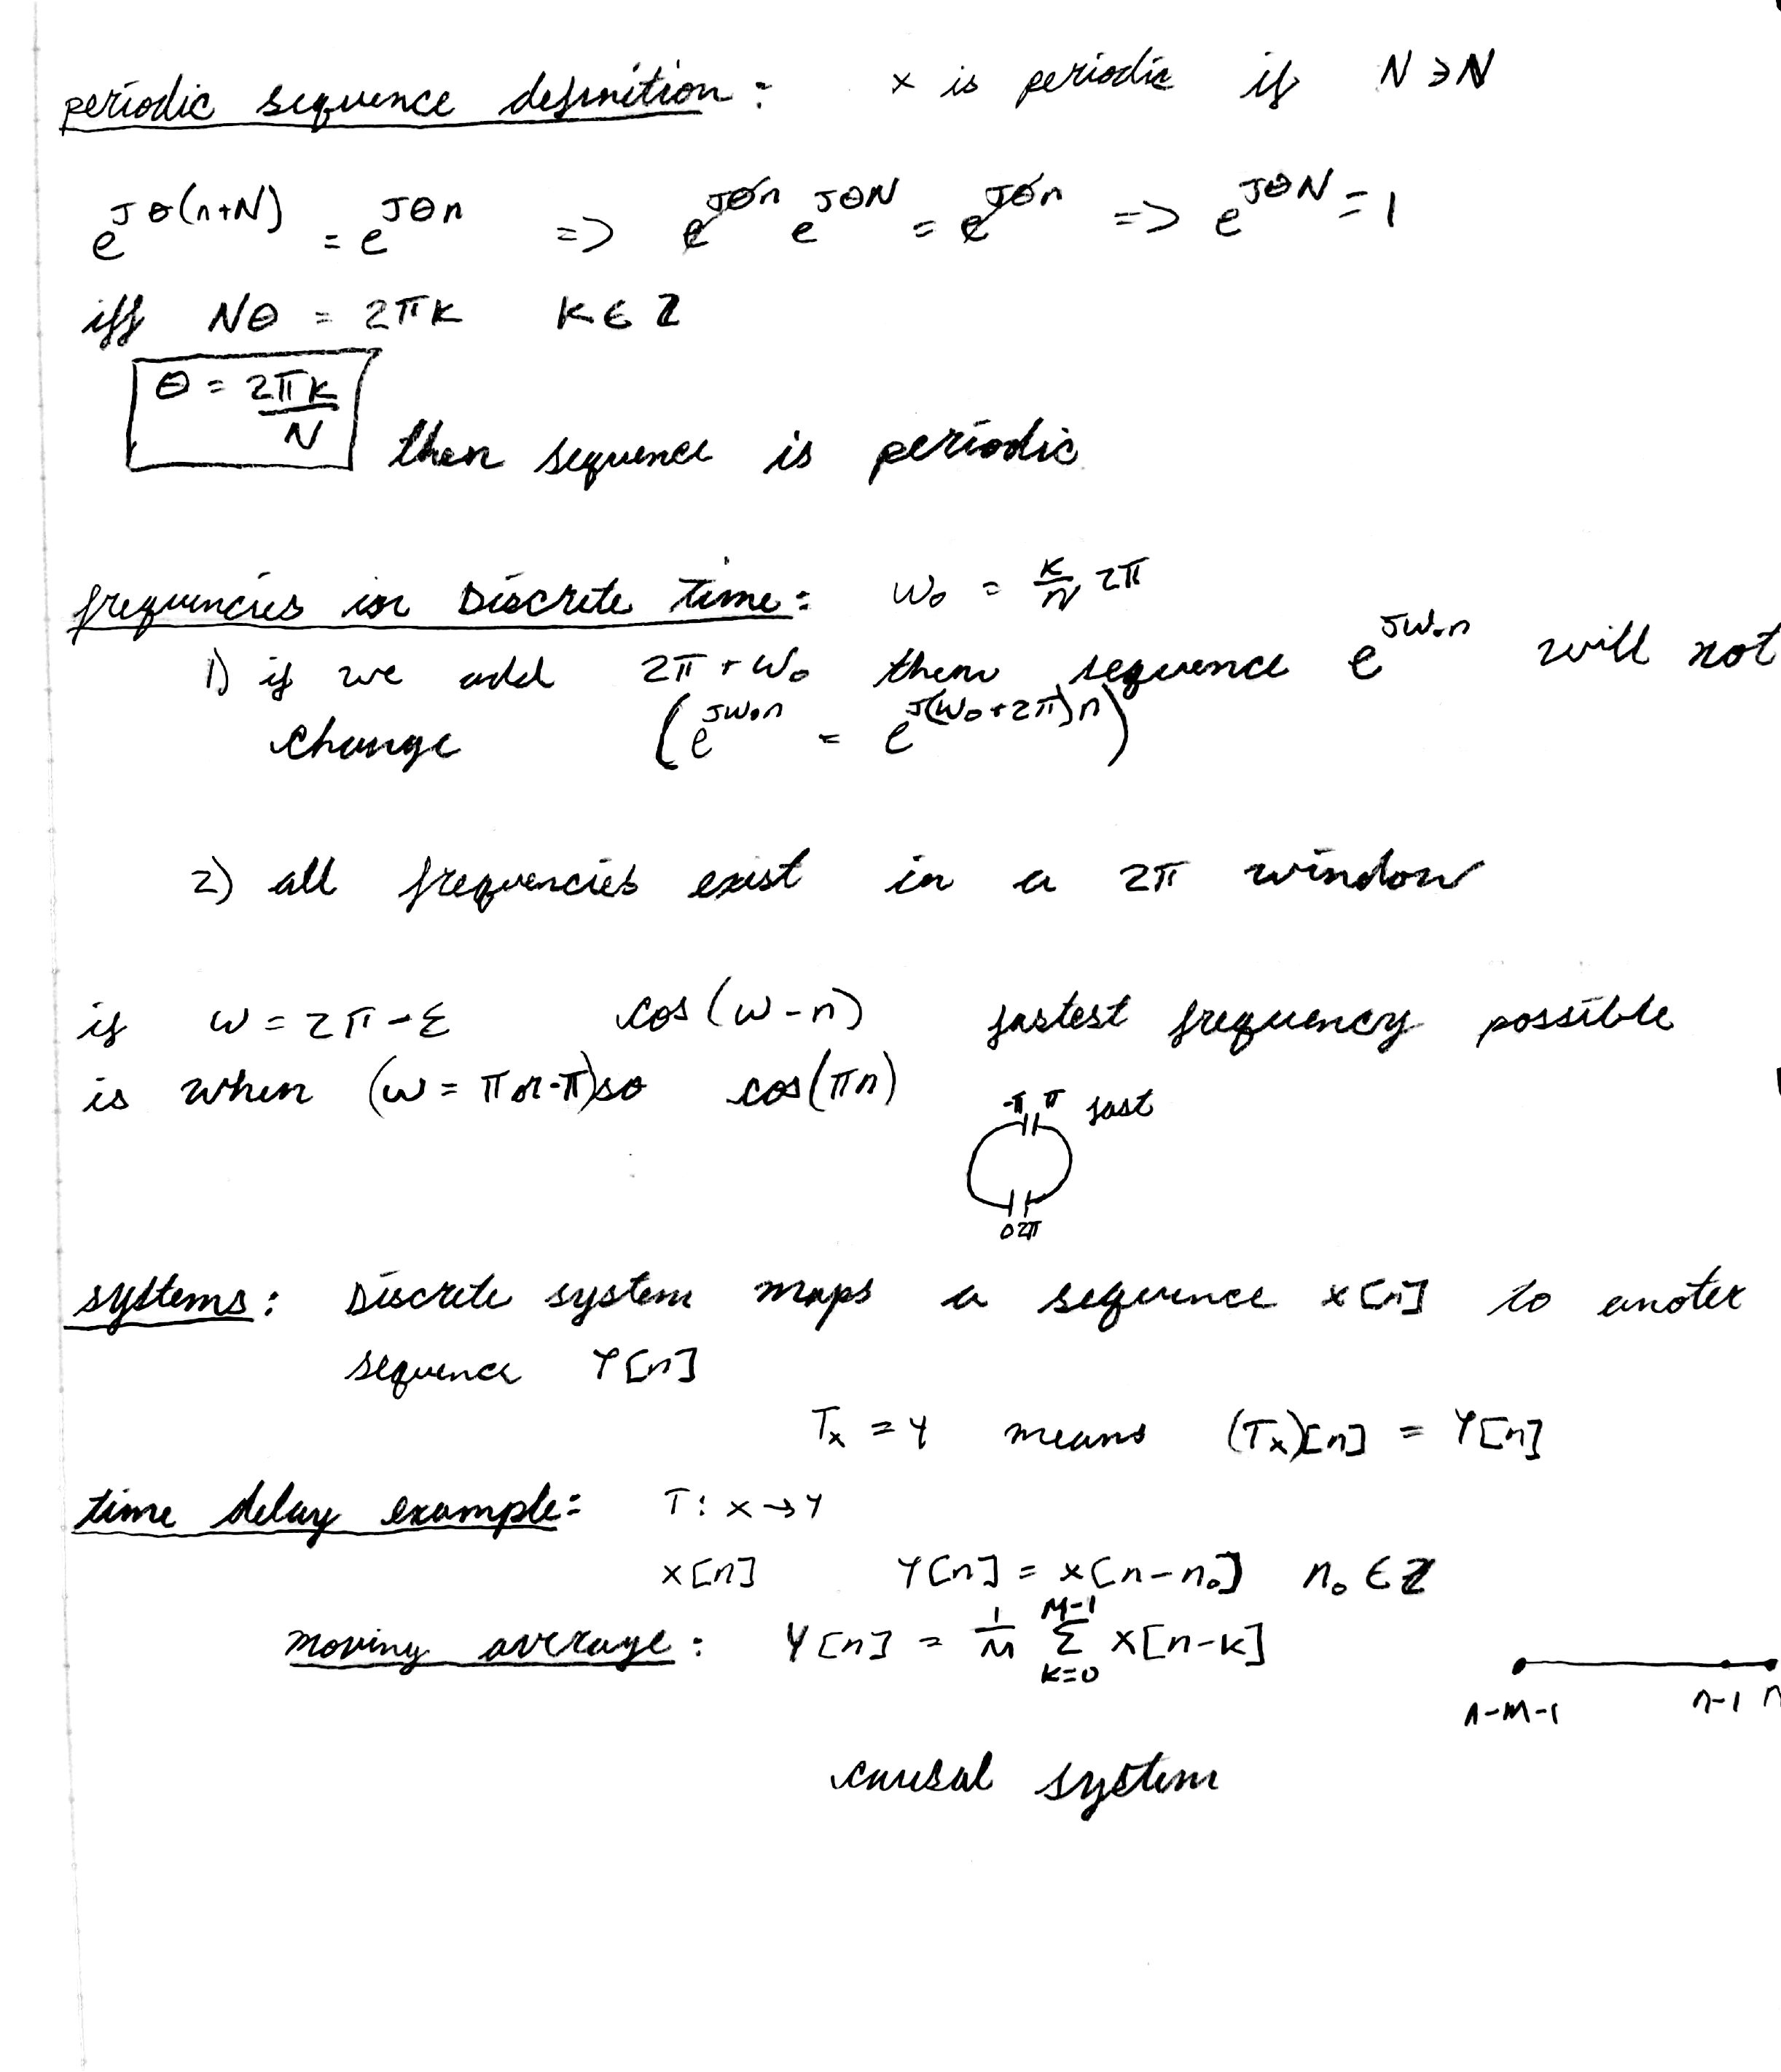 periodic sequence definition: x is periodic if N ∋ N
e^{Jθ(n+N)} = e^{Jθn} => e^{Jθn} e^{JθN} = e^{Jθn} => e^{JθN} = 1
iff Nθ = 2πk k ∈ Z
θ = 2πk/N then sequence is periodic
frequencies in Discrete time: ω₀ = k/N 2π
1) if we add 2π + ω₀ then sequence e^{Jω₀n} will not
change (e^{Jω₀n} = e^{J(ω₀+2π)n})
2) all frequencies exist in a 2π window
if ω = 2π - ε cos(ω-n) fastest frequency possible
is when (ω = π or -π) so cos(πn)
-π π fast
0 2π
systems: Discrete system maps a sequence x[n] to anoter
sequence Y[n]
Tx = Y means (Tx)[n] = Y[n]
time delay example: T: x → Y
x[n] Y[n] = x[n-n₀] n₀ ∈ Z
moving average: Y[n] = 1/M Σ_{k=0}^{M-1} x[n-k]
n-M-1 n-1 n
causal system